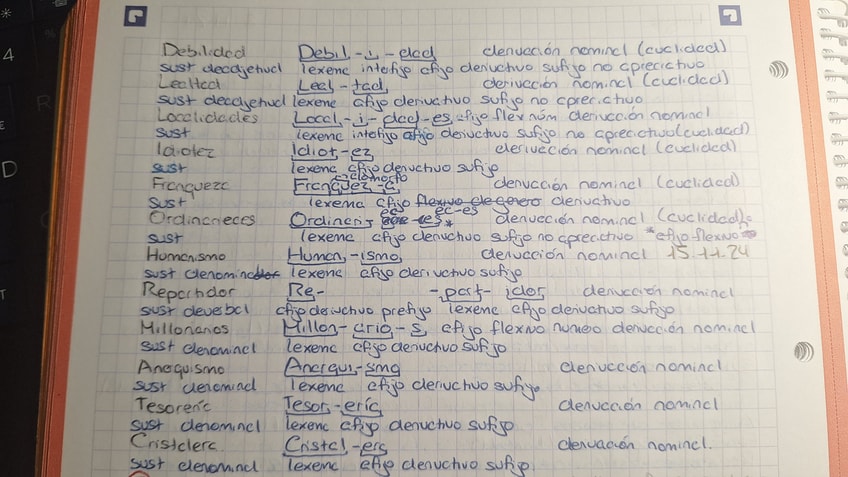 Debilidad Debil - i - dad derivación nominal (cualidad)
sust deadjetival lexema interfijo afijo derivativo sufijo no apreciativo
Lealtad Leal - tad derivación nominal (cualidad)
sust deadjetival lexema afijo derivativo sufijo no apreciativo
Localidades Local - i - dad - es, afijo flex núm derivación nominal
sust lexema interfijo afijo derivativo sufijo no apreciativo (cualidad)
Idiotez Idiot - ez derivación nominal (cualidad)
sust lexema afijo derivativo sufijo
Franqueza Franquez - a derivación nominal (cualidad)
sust lexema afijo flexivo de genero derivativo
Ordinarieces Ordinari - ec - es derivación nominal (cualidad)
sust lexema afijo derivativo sufijo no apreciativo * afijo flexivo
Humanismo Human - ismo derivación nominal 15.11.24
sust denominal lexema afijo derivativo sufijo
Repartidor Re- - part - idor derivación nominal
sust deverbal afijo derivativo prefijo lexema afijo derivativo sufijo
Millonarios Millon - ario - s, afijo flexivo numero derivación nominal
sust denominal lexema afijo derivativo sufijo
Anarquismo Anarqui - smo derivación nominal
sust denominal lexema afijo derivativo sufijo
Tesorería Tesor - ería derivación nominal
sust denominal lexema afijo derivativo sufijo
Cristalera Cristal - era derivación nominal.
sust denominal lexema afijo derivativo sufijo